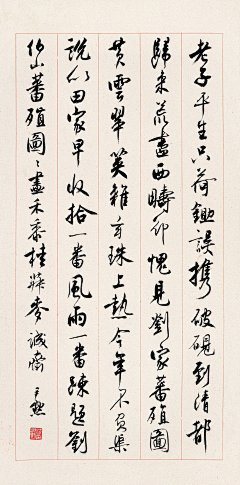 老子平生只荷鋤誤攜破硯到清都
歸來荒盡西疇卻愧見劉家蕃殖圖
黃雲翠莢雜玄珠上熟今年不負渠
說似田家早收拾一番風雨一番踈題劉
伯山蕃殖圖〻畫禾黍麥誠齋